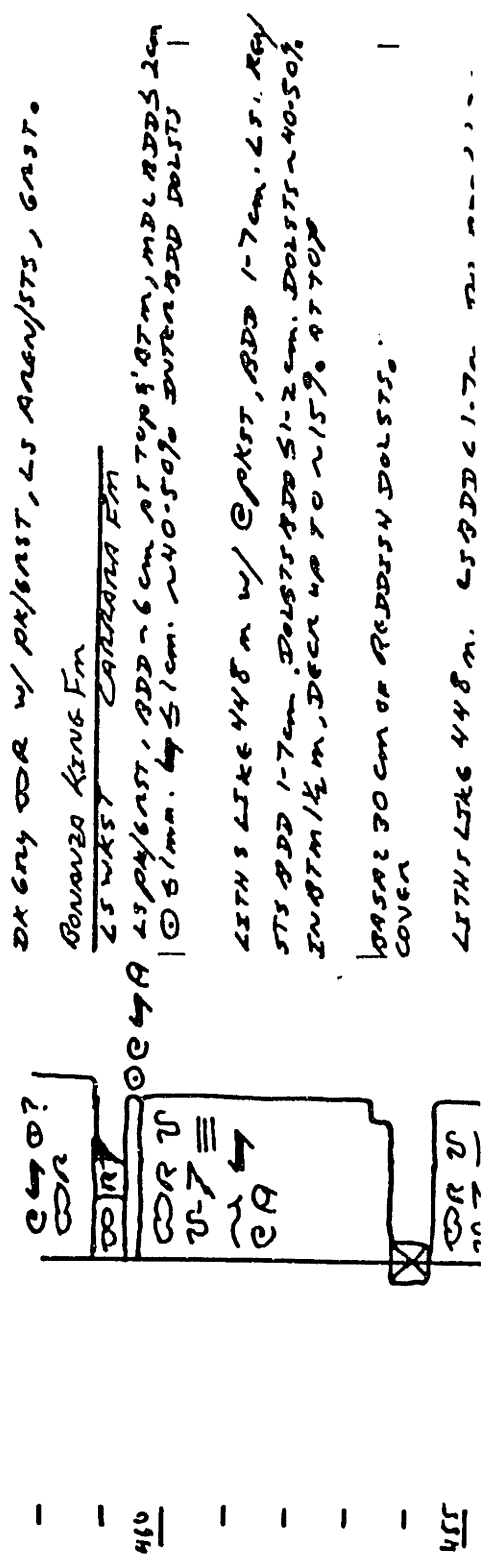 DK GRY R w/ PK/GRST, LS ARGN/STS, GRST.
BONANZA KING Fm
LS WKST CARRARA Fm
LS PK/GRST, BDD ~6 cm AT TOP & BTM, MDL BDD ≤ 2cm
≤ 1mm. ≤ 1cm. ~40-50% INTERBDD DOLSTS
LITHS LIKE 448 m w/ PKST, BDD 1-7cm. LSi. KGY
STS BDD 1-7cm. DOLSTS BDD ≤ 1-2 cm. DOLSTS ~ 40-50%
IN BTM 1½ m, DECR UP TO ~15% AT TOP
BASAL 30 cm OF REDDISH DOLSTS.
COVER
LITHS LIKE 448 m. LS BDD < 1-7
?
R
R
A
R
A
R
460
455